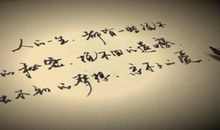 人的一生 都有一些说不
的秘密.挽不回的遗憾.
不到的梦想.忘不了的爱